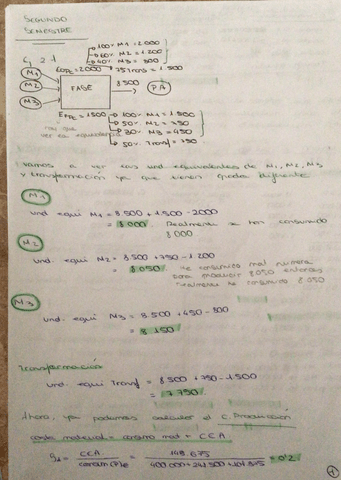 SEGUNDO
SEMESTRE
Ej 2.1
100% M1 = 2.000
60% M2 = 1.200
40% M3 = 800
75% Transf = 1.500
M1
M2
M3
FASE
8.500
PA
100% M1 = 1.500
50% M2 = 750
30% M3 = 450
50% Transf = 750
Vamos a ver las und equivalentes de M1, M2, M3
y transformación ya que tienen grados diferente
M1
und equi M1 = 8.500 + 1.500 - 2000
= 8.000 Realmente se han consumido
8.000
M2
und. equi M2 = 8.500 + 750 - 1.200
= 8.050
para producir 8.050 entonces
realmente he consumido 8.050
M3
und. equi M3 = 8.500 + 450 - 800
= 8.150
Transformación
und. equi Transf = 8.500 + 750 - 1.500
= 7.750
Ahora, ya podemos calcular el C. Producción
coste material = consumo mat + CCA
CCA
= 0'2
1